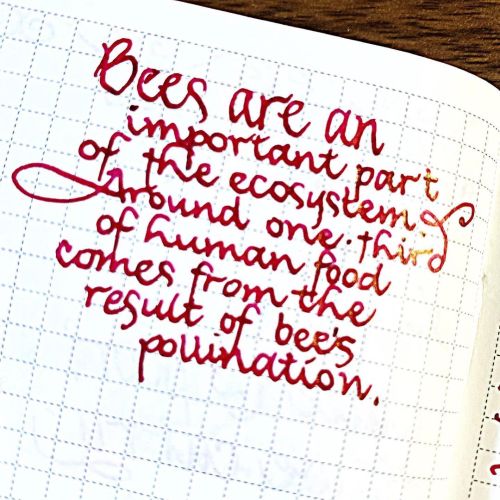 Bees are an
important part
of the ecosystem.
Around one-third
of human food
comes from the
result of bee's
pollination.